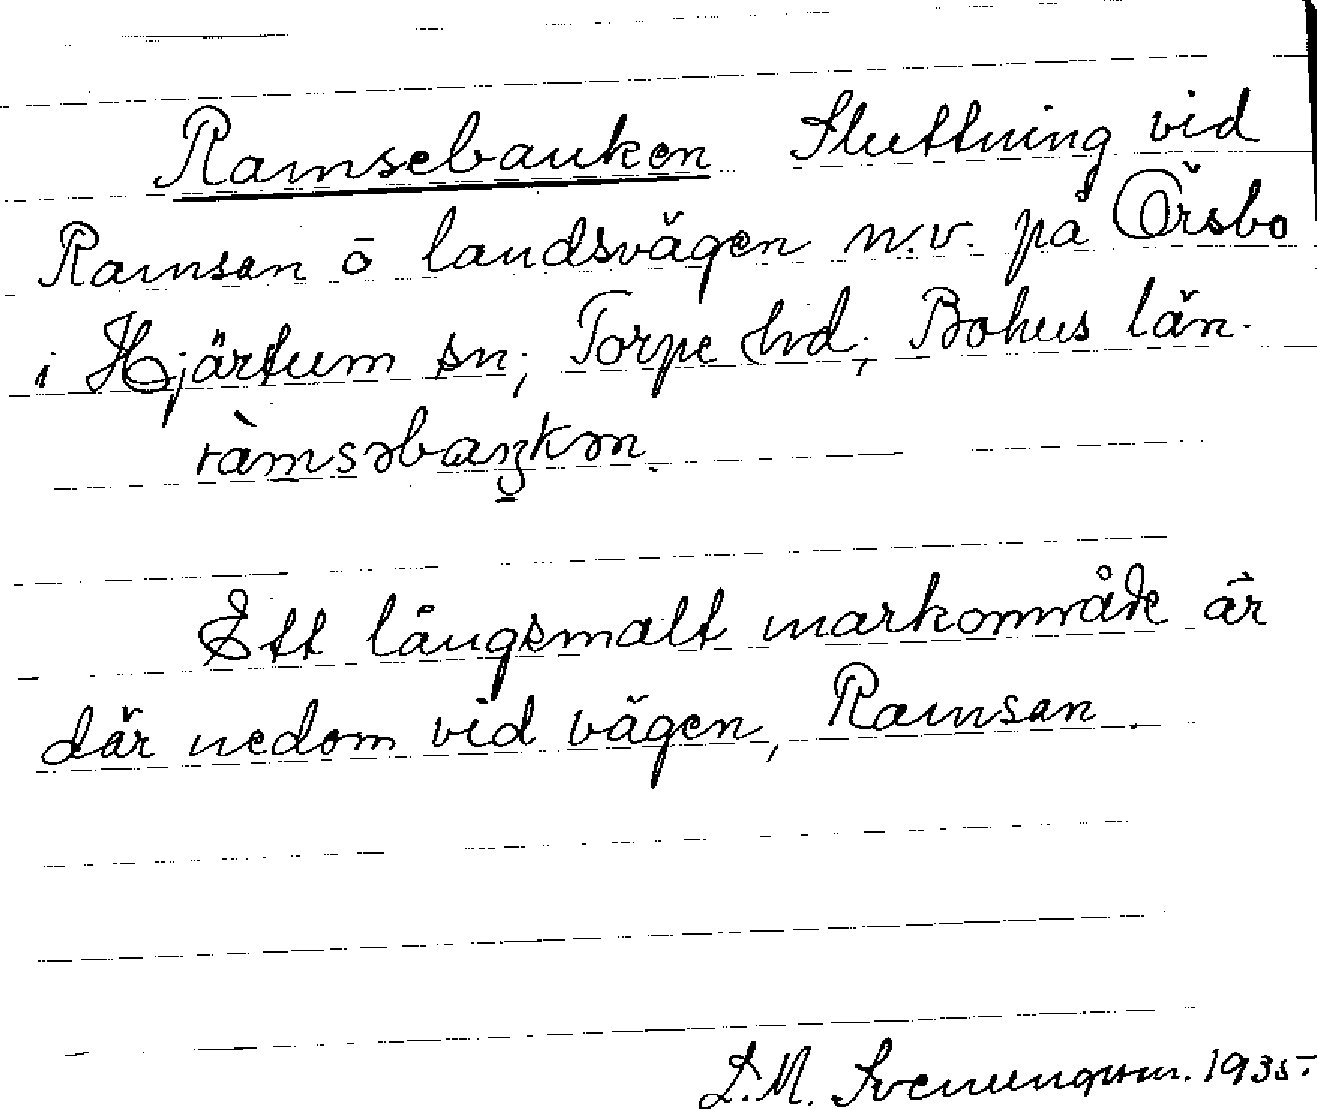 Ramsebanken Sluttning vid
Ramsan ō landsvägen n.v. på Örsbo
i Hjärtum sn; Torpe hrd; Bohus län.
ràmsəbaŋkən.
Ett långsmalt markområde är
där nedom vid vägen, Ramsan.
S.M. Svenungsson. 1935.